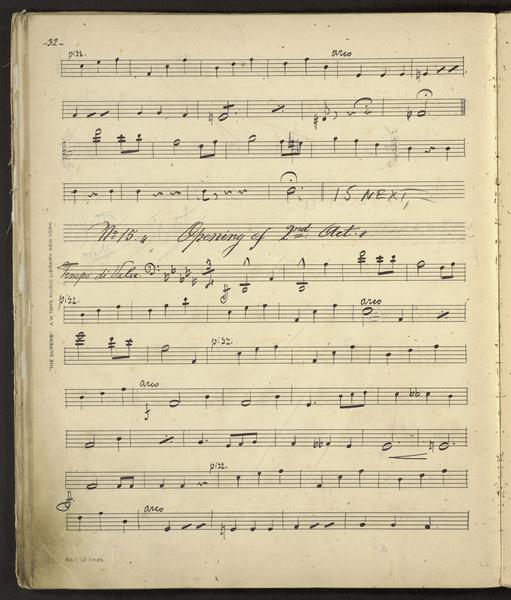 -32-
pizz. arco
15 NEXT,
No 15. Opening of 2nd Act.
Tempo di Valse
pizz. arco
pizz.
arco
f
pizz.
arco
"THE SUPERB" A.W. TAMS MUSIC LIBRARY, NEW YORK.
No. 1 12 lines.